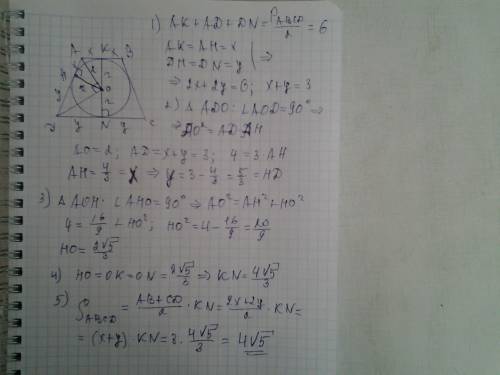 1) AK + AD + DN = P_ABCD / 2 = 6
AK = AH = x
DH = DN = y | ⇒
⇒ 2x + 2y = 6; x + y = 3
2) △ ADO: ∠AOD = 90° ⇒
⇒ AO² = AD · AH
AO = 2; AD = x + y = 3; 4 = 3 · AH
AH = 4/3 = x ⇒ y = 3 - 4/3 = 5/3 = HD
3) △ AOH: ∠AHO = 90° ⇒ AO² = AH² + HO²
4 = 16/9 + HO²; HO² = 4 - 16/9 = 20/9
HO = 2√5/3
4) HO = OK = ON = 2√5/3 ⇒ KN = 4√5/3
5) S_ABCD = (AB + CD)/2 · KN = (2x + 2y)/2 · KN =
= (x + y) · KN = 3 · 4√5/3 = 4√5
A x K x B
O
y N y C